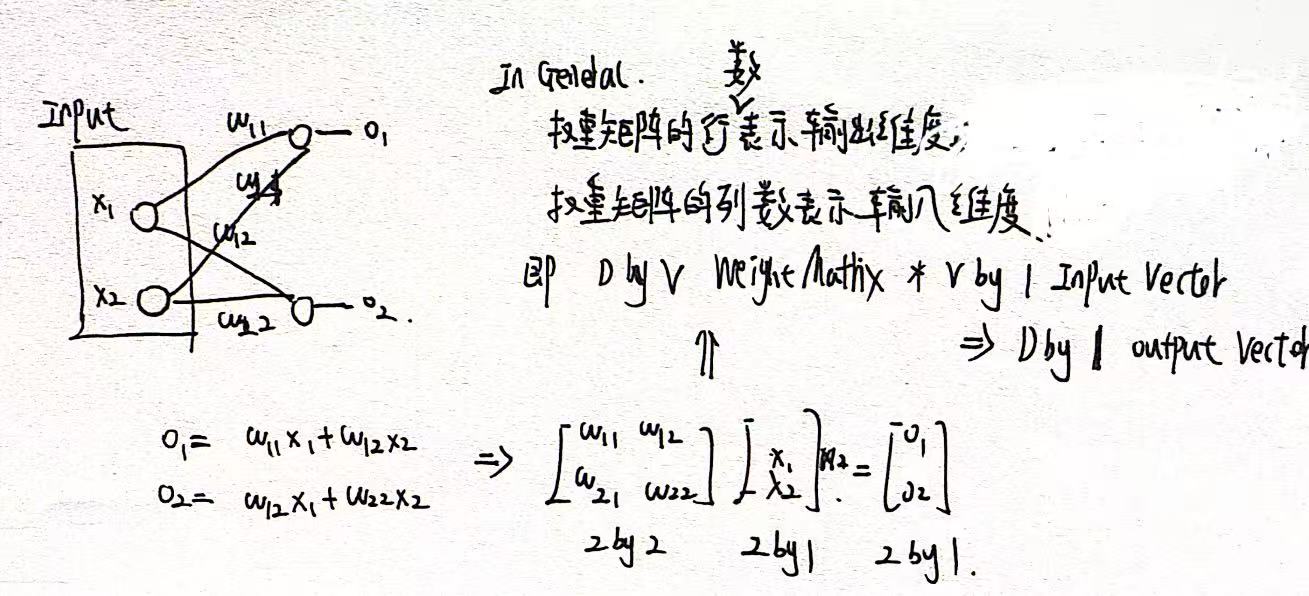 Input
x₁
x₂
w₁₁
w₁₂
w₂₂
o₁
o₂.
In General.
权重矩阵的行数表示输出维度;
权重矩阵的列数表示输入维度.
即 D by V Weight Matrix * V by 1 Input Vector
⇑
⇒ D by 1 output vector
o₁ = w₁₁x₁ + w₁₂x₂
o₂ = w₁₂x₁ + w₂₂x₂
⇒ [w₁₁ w₁₂
w₂₁ w₂₂] [x₁
x₂] = [o₁
o₂]
2 by 2 2 by 1 2 by 1.